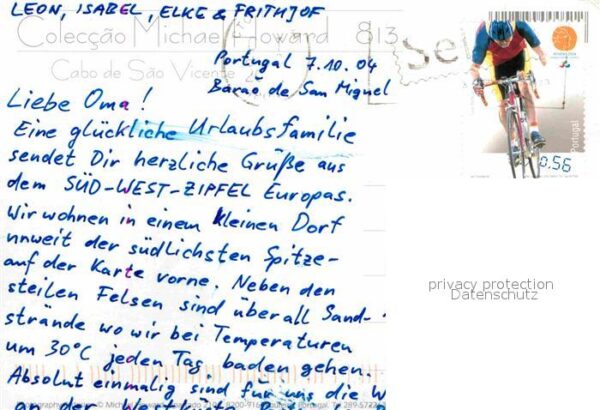 LEON, ISABEL, ELKE & FRITHJOF
Colecção Michael Howard 813
Cabo de São Vicente
Portugal 7.10.04
Barao de San Miguel
Liebe Oma!
Eine glückliche Urlaubsfamilie
sendet Dir herzliche Grüße aus
dem SÜD-WEST-ZIPFEL Europas.
Wir wohnen in einem kleinen Dorf
unweit der südlichsten Spitze
auf der Karte vorne. Neben den
steilen Felsen sind überall Sand-
strände wo wir bei Temperaturen
um 30°C jeden Tag baden gehen.
Absolut einmalig sind für uns die W
an der
Portugal
0.56
privacy protection
Datenschutz